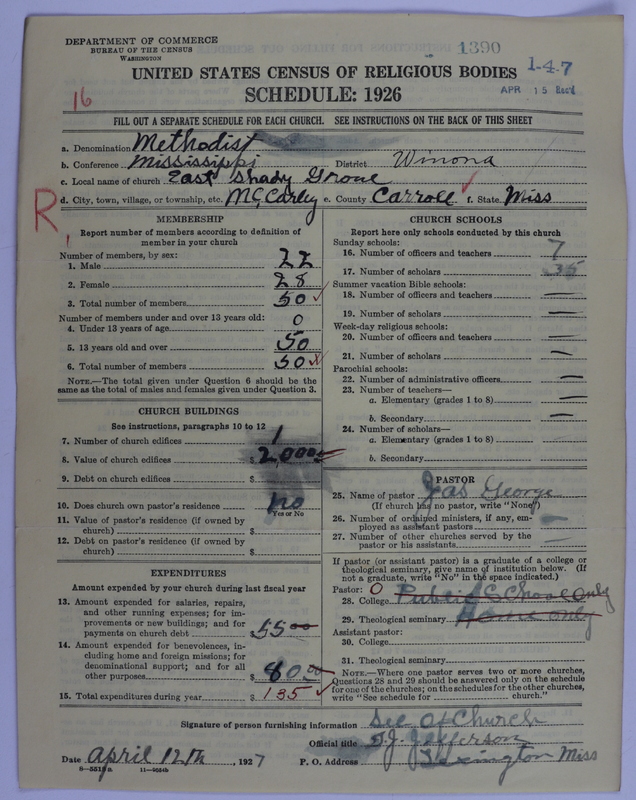 DEPARTMENT OF COMMERCE
BUREAU OF THE CENSUS
WASHINGTON
1390
1-4-7
APR 15 Rec'd
16
UNITED STATES CENSUS OF RELIGIOUS BODIES
SCHEDULE: 1926
FILL OUT A SEPARATE SCHEDULE FOR EACH CHURCH. SEE INSTRUCTIONS ON THE BACK OF THIS SHEET
a. Denomination Methodist
b. Conference Mississippi District Winona
c. Local name of church East Shady Grove
R,
d. City, town, village, or township, etc. McCarley e. County Carroll f. State Miss
MEMBERSHIP
Report number of members according to definition of
member in your church
Number of members, by sex:
1. Male 22
2. Female 28
3. Total number of members 50
Number of members under and over 13 years old:
4. Under 13 years of age 0
5. 13 years old and over 50
6. Total number of members 50
NOTE.—The total given under Question 6 should be
same as the total of males and females given under Question 3.
CHURCH BUILDINGS
See instructions, paragraphs 10 to 12
7. Number of church edifices 1
8. Value of church edifices $ 2,000
9. Debt on church edifices $
10. Does church own pastor's residence no
Yes or No
11. Value of pastor's residence (if owned by
church) $
12. Debt on pastor's residence (if owned by
church) $
EXPENDITURES
Amount expended by your church during last fiscal year
13. Amount expended for salaries, repairs,
and other running expenses; for im-
provements or new buildings; and for
payments on church debt $ 55 00
14. Amount expended for benevolences, in-
cluding home and foreign missions; for
denominational support; and for all
other purposes $ 80 00
15. Total expenditures during year $ 135
CHURCH SCHOOLS
Report here only schools conducted by this church
Sunday schools:
16. Number of officers and teachers 7
17. Number of scholars 35
Summer vacation Bible schools:
18. Number of officers and teachers —
19. Number of scholars —
Week-day religious schools:
20. Number of officers and teachers —
21. Number of scholars —
Parochial schools:
22. Number of administrative officers —
23. Number of teachers—
a. Elementary (grades 1 to 8) —
b. Secondary —
24. Number of scholars—
a. Elementary (grades 1 to 8) —
b. Secondary
PASTOR
25. Name of pastor Jas George
(If church has no pastor, write "None")
26. Number of ordained ministers, if any, em-
ployed as assistant pastors —
27. Number of other churches served by the
pastor or his assistants —
If pastor (or assistant pastor) is a graduate of a college or
theological seminary, give name of institution below. (If
not a graduate, write "No" in the space indicated.)
Pastor: 0
28. College Public School Only
29. Theological seminary Home only
Assistant pastor:
30. College
31. Theological seminary
NOTE.—Where one pastor serves two or more churches,
Questions 28 and 29 should be answered only on the schedule
for one of the churches; on the schedules for the other churches,
write "See schedule for church."
Signature of person furnishing information Sec of Church
Official title Jefferson
Date April 12th, 1927 P. O. Address Lexington Miss